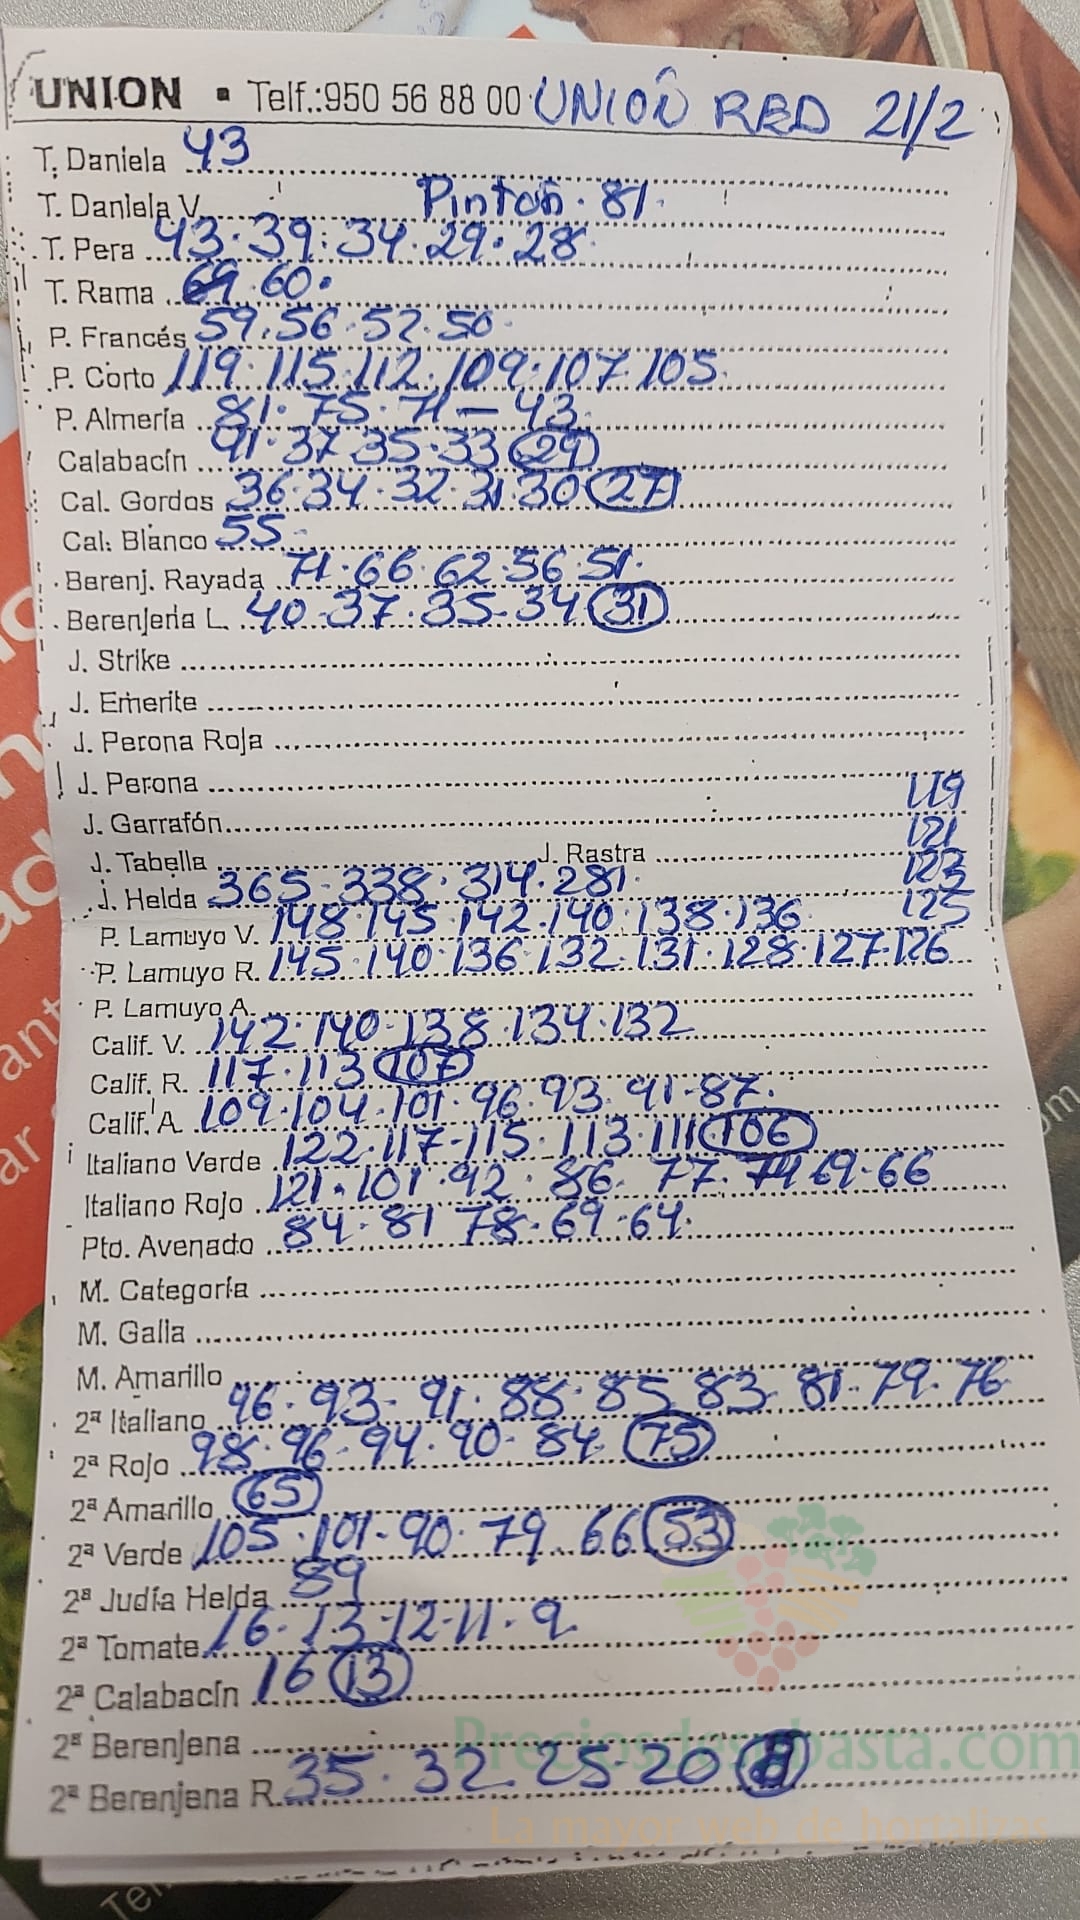 UNION • Telf.:950 56 88 00 UNION RED 21/2
T. Daniela 43
T. Daniela V. Pinton. 81.
T. Pera 43. 39. 34. 29. 28
T. Rama 69 60.
P. Francés 59. 56. 52. 50
P. Corto 119. 115. 112. 109. 107. 105
P. Almería 81. 75. 71 - 43.
Calabacín 41. 37 35. 33 (29)
Cal. Gordos 36. 34. 32. 31. 30 (27)
Cal. Blanco 55
Berenj. Rayada 71. 66. 62. 56. 51.
Berenjena L. 40. 37. 35. 34 (31)
J. Strike
J. Emerite
J. Perona Roja
J. Perona
J. Garrafón 119
121
J. Tabella J. Rastra 123
J. Helda 365. 338. 314. 281.
P. Lamuyo V. 148. 145 142. 140. 138. 136 125
P. Lamuyo R. 145. 140. 136. 132. 131. 128. 127. 126
P. Lamuyo A.
Calif. V. 142. 140. 138. 134. 132
Calif. R. 117. 113 (107)
Calif. A. 109. 104. 101. 96. 93. 91. 87.
Italiano Verde 122. 117. 115. 113. 111 (106)
Italiano Rojo 121. 101. 92. 86. 77. 74 69. 66
Pto. Avenado 84. 81 78. 69. 64.
M. Categoría
M. Galia
M. Amarillo
2ª Italiano 96. 93. 91. 88. 85 83. 81. 79. 76
2ª Rojo 98. 96. 94. 90. 84 (75)
2ª Amarillo (65)
2ª Verde 105. 101. 90. 79. 66 (53)
2ª Judía Helda 89
2ª Tomate 16. 13. 12. 11. 9.
2ª Calabacín 16 (13)
2ª Berenjena
Preciosdesubasta.com
2ª Berenjena R. 35. 32. 25. 20
La mayor web de hortalizas